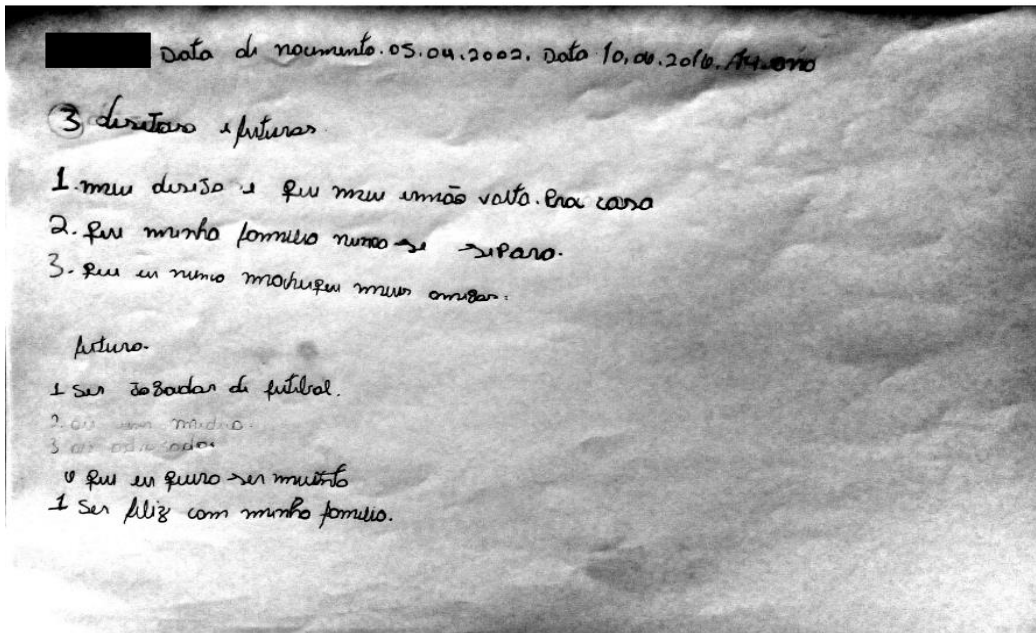 Data de nacimento. 05.04.2002. Data 10.06.2016. 14. ano
3 desetaso e futuras.
1. meu deseso e qeu meu irmão volta. Pra casa
2. qeu minha familia nunca se separa.
3. qeu eu nunca machuqeu meus amigas.
futuro.
1 Ser Jogador de futibal.
2. ou um medico.
3 ou advogador
o qeu eu quero ser muinto
1 Ser feliz com minha familia.